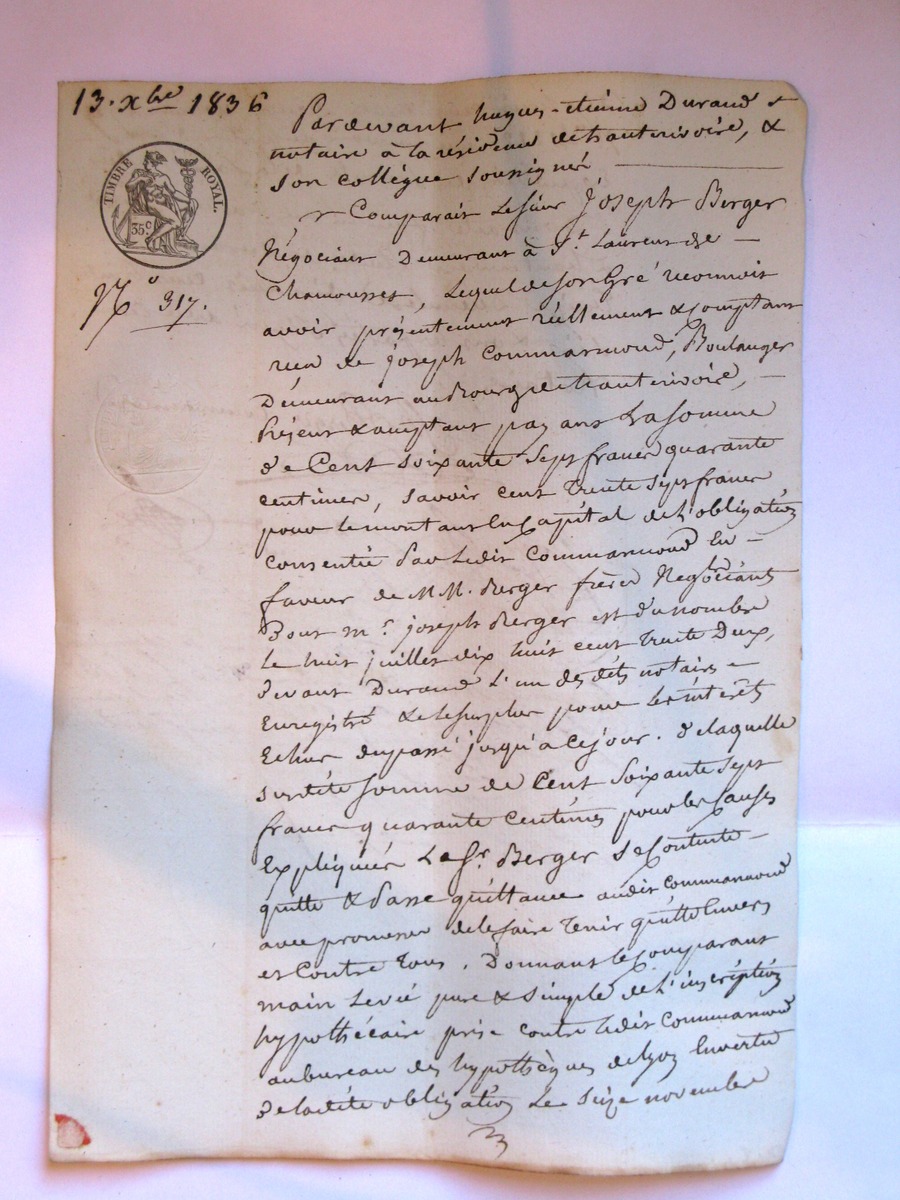 13. xbre 1836
TIMBRE ROYAL.
35c.
No 317.
Pardevant hugues-étienne Durand &
notaire à la résidence de hauterivoire, &
son collégue soussignés
Comparait Le sieur joseph Berger
Négociant Demeurant à St. Laurent de
Chamousset, Lequel de son Gré reconnoit
avoir présentement réellement & comptant
recu de joseph Commarmond, Boulanger
Demeurant au Bourg de hauterivoire,
Présent & acceptant payant La somme
de Cent soixante sept francs quarante
centimes, savoir cent trente sept francs
pour le montant En Capital de L'obligation
Consentie Par Ledit Commarmond En
faveur de M.M. Berger frères Negotiants
Dont mr. joseph Berger est du nombre
Le huit juillet dix huit cent trente Deux,
devant Durand L'un des dts notaires
Enregistré & le surplus pour les intérêts
Echus du passé jusqu'à ce jour. de laquelle
susdite somme de Cent Soixante Sept
francs quarante Centimes pour les Causes
Expliquées Le Sr. Berger se Contente
quitte & Passe quittance audit Commarmond
avec promesse de le faire tenir quitte Envers
et Contre tous. Donnant le Comparant
main Levée pure & simple de L'inscription
hypothécaire prise contre ledit Commarmond
au bureau des hypothèques de Lyon En vertu
de ladite obligation Le seize novembre